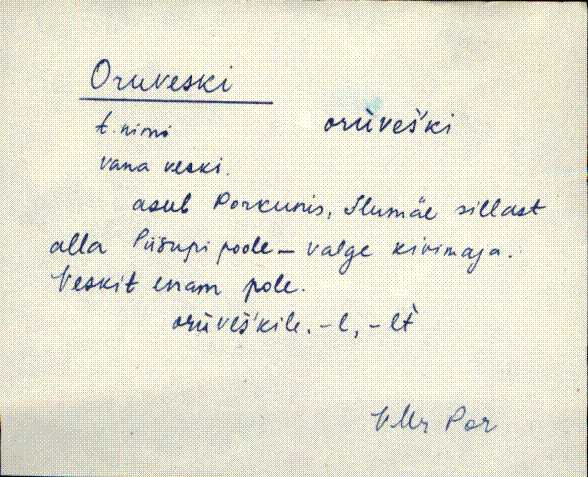 Oruveski
t. nimi orùveš́ki
vana veski.
asub Porkunis, Ilumäe sillast
alla Piisupi poole – valge kivimaja.
Veskit enam pole.
orùveš́kile, -l, -lt̀
VMr Por